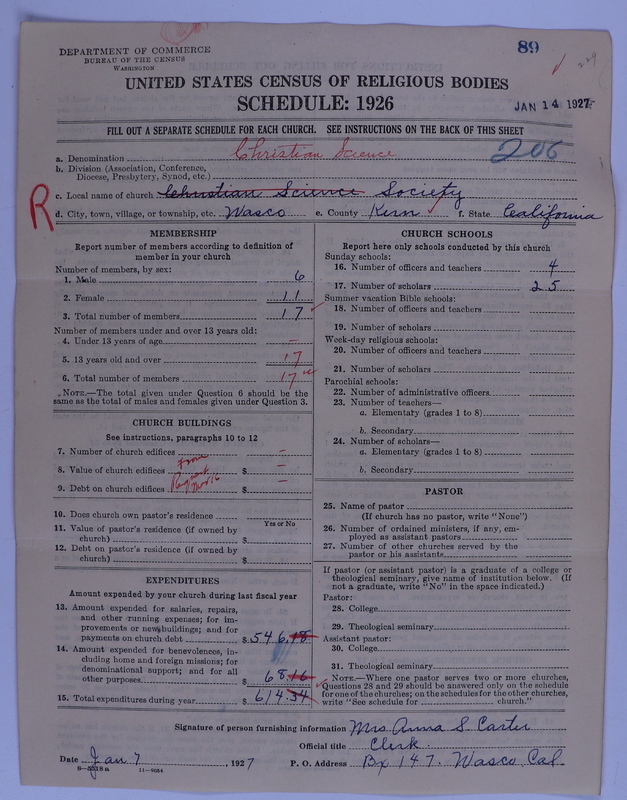 DEPARTMENT OF COMMERCE
BUREAU OF THE CENSUS
WASHINGTON
89
229
UNITED STATES CENSUS OF RELIGIOUS BODIES
SCHEDULE: 1926
JAN 14 1927
FILL OUT A SEPARATE SCHEDULE FOR EACH CHURCH. SEE INSTRUCTIONS ON THE BACK OF THIS SHEET
206
a. Denomination Christian Science
b. Division (Association, Conference,
Diocese, Presbytery, Synod, etc.)
c. Local name of church Christian Science Society
R
d. City, town, village, or township, etc. Wasco e. County Kern f. State California
MEMBERSHIP
Report number of members according to definition of
member in your church
Number of members, by sex:
1. Male 6
2. Female 11
3. Total number of members 17
Number of members under and over 13 years old:
4. Under 13 years of age –
5. 13 years old and over 17
6. Total number of members 17
NOTE.—The total given under Question 6 should be the
same as the total of males and females given under Question 3.
CHURCH BUILDINGS
See instructions, paragraphs 10 to 12
7. Number of church edifices –
8. Value of church edifices $ –
9. Debt on church edifices $ –
from
10. Does church own pastor's residence
Yes or No
11. Value of pastor's residence (if owned by
church) $
12. Debt on pastor's residence (if owned by
church) $
EXPENDITURES
Amount expended by your church during last fiscal year
13. Amount expended for salaries, repairs,
and other running expenses; for im-
provements or new buildings; and for
payments on church debt $ 546.18
14. Amount expended for benevolences, in-
cluding home and foreign missions; for
denominational support; and for all
other purposes $ 68.16
15. Total expenditures during year $ 614.34
CHURCH SCHOOLS
Report here only schools conducted by this church
Sunday schools:
16. Number of officers and teachers 4
17. Number of scholars 25
Summer vacation Bible schools:
18. Number of officers and teachers
19. Number of scholars
Week-day religious schools:
20. Number of officers and teachers
21. Number of scholars
Parochial schools:
22. Number of administrative officers
23. Number of teachers—
a. Elementary (grades 1 to 8)
b. Secondary
24. Number of scholars—
a. Elementary (grades 1 to 8)
b. Secondary
PASTOR
25. Name of pastor
(If church has no pastor, write "None")
26. Number of ordained ministers, if any, em-
ployed as assistant pastors
27. Number of other churches served by the
pastor or his assistants
If pastor (or assistant pastor) is a graduate of a college or
theological seminary, give name of institution below. (If
not a graduate, write "No" in the space indicated.)
Pastor:
28. College
29. Theological seminary
Assistant pastor:
30. College
31. Theological seminary
NOTE.—Where one pastor serves two or more churches,
Questions 28 and 29 should be answered only on the schedule
for one of the churches; on the schedules for the other churches,
write "See schedule for church."
Signature of person furnishing information Mrs Anna S. Carter
Official title Clerk.
Date Jan 7, 1927 P. O. Address Bx 147. Wasco Cal.
8-5518a 11-9034